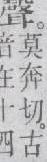 聲莫奔切古
音在十四